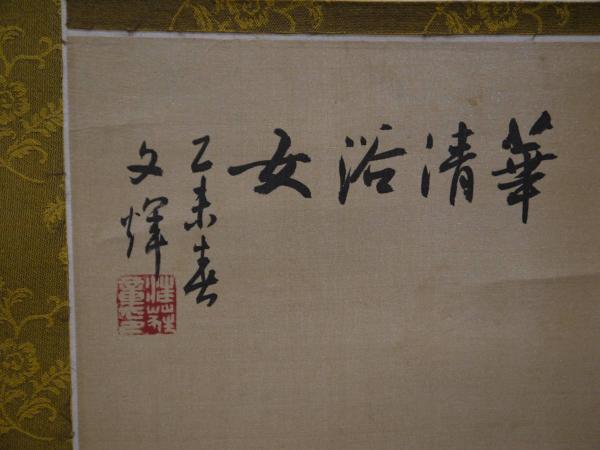 華清浴女
乙未春
文輝